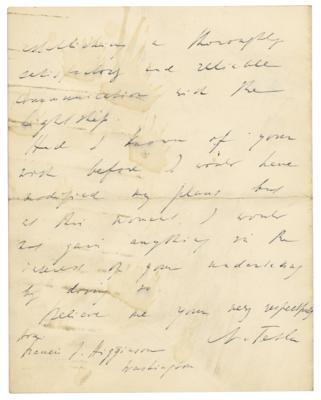 establishing a thoroughly
satisfactory and reliable
communication with the
Light ship.
Had I known of your
wish before I would have
modified my plans but
at this moment I would
not gain anything in the
interest of your undertaking
by doing so.
Believe me yours very respectfully
N. Tesla
Francis J. Higginson
Washington